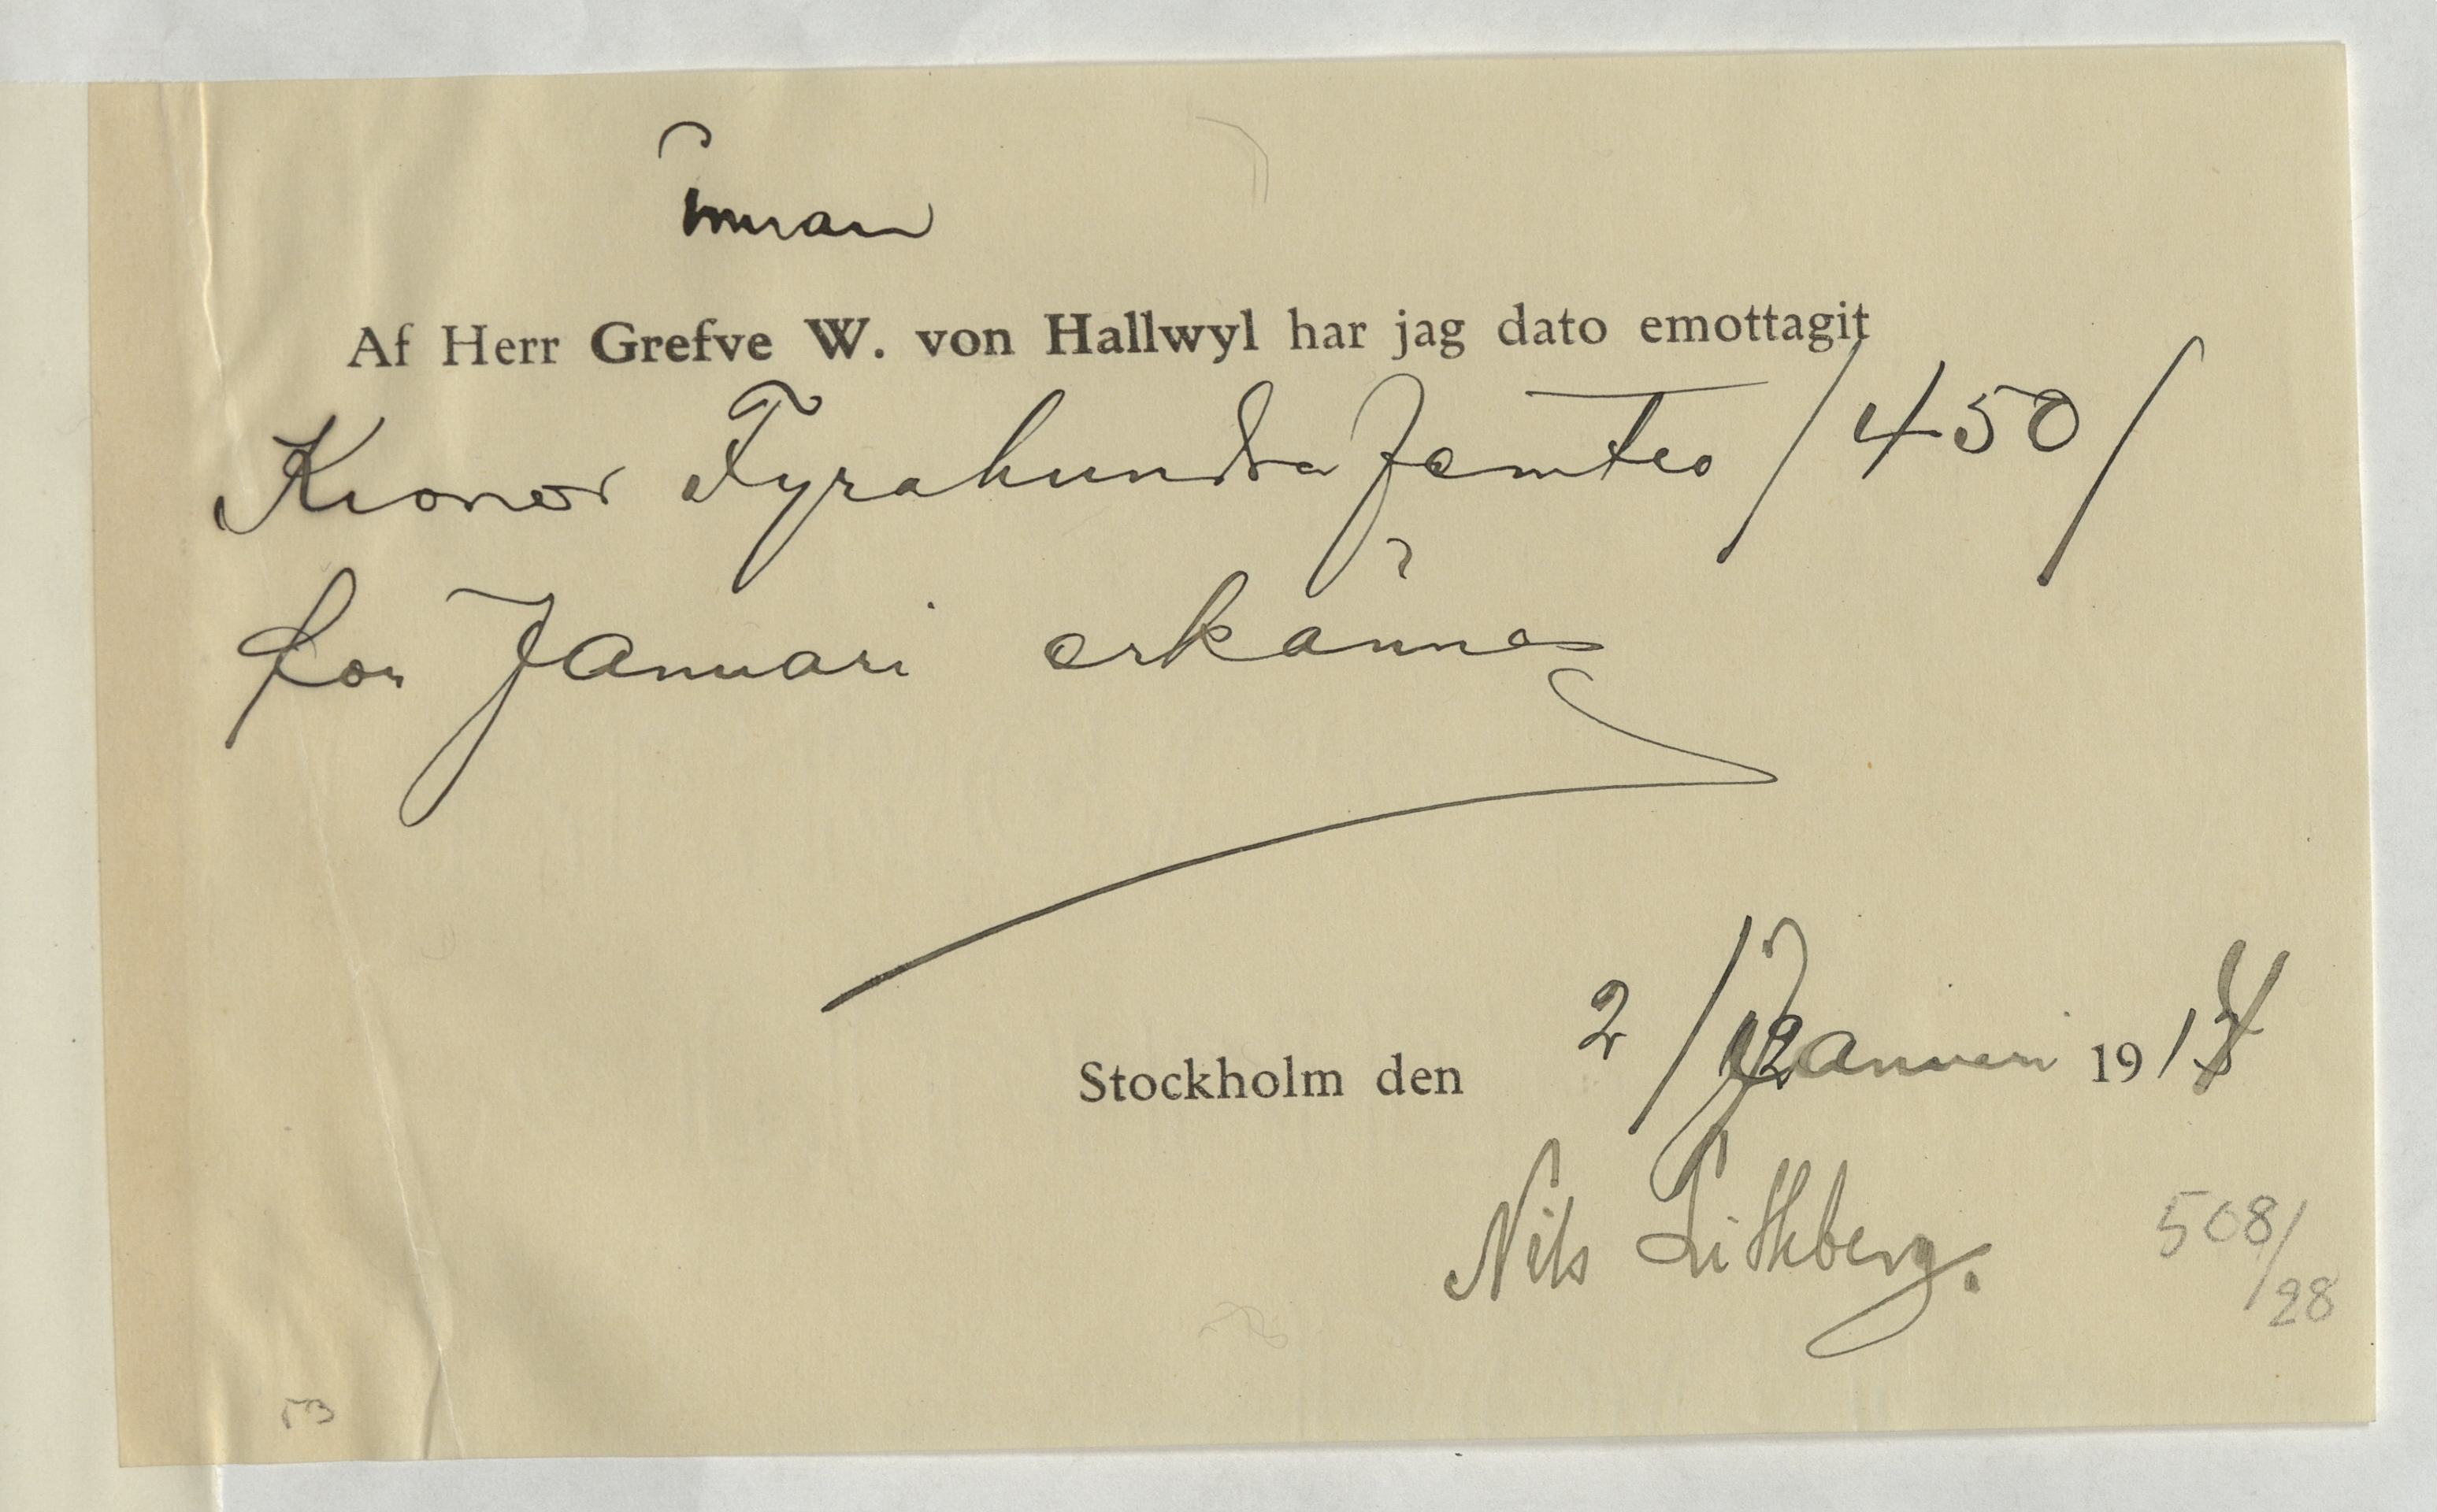 Af Herr Grefve W. von Hallwyl har jag dato emottagit
Kronor Fyrahundra femtio /450/
för Januari erkännes
Stockholm den 2/Januari 1914
Nils Lithberg.
508/28
53